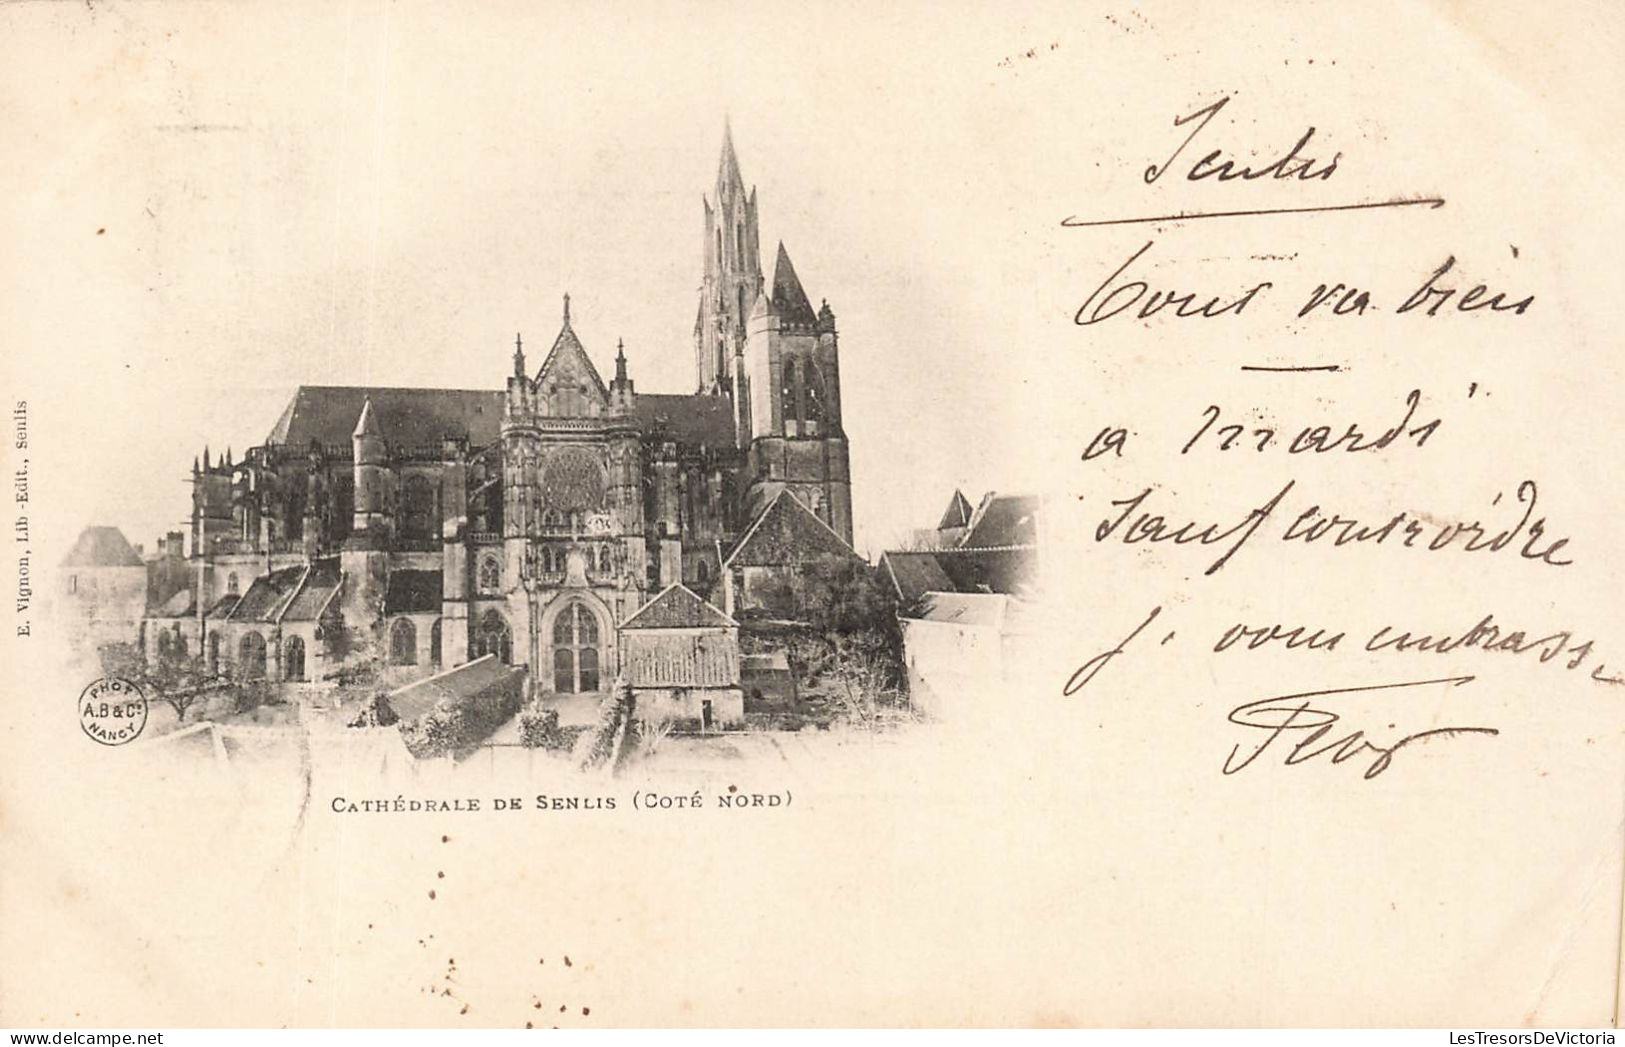 Senlis
Tout va bien
a mardi
Sauf contrordre
J. vous embrasse
E. Vignon, Lib -Edit., Senlis
PHOT
A.B & Cie
NANCY
CATHÉDRALE DE SENLIS (COTÉ NORD)
LesTresorsDeVictoria